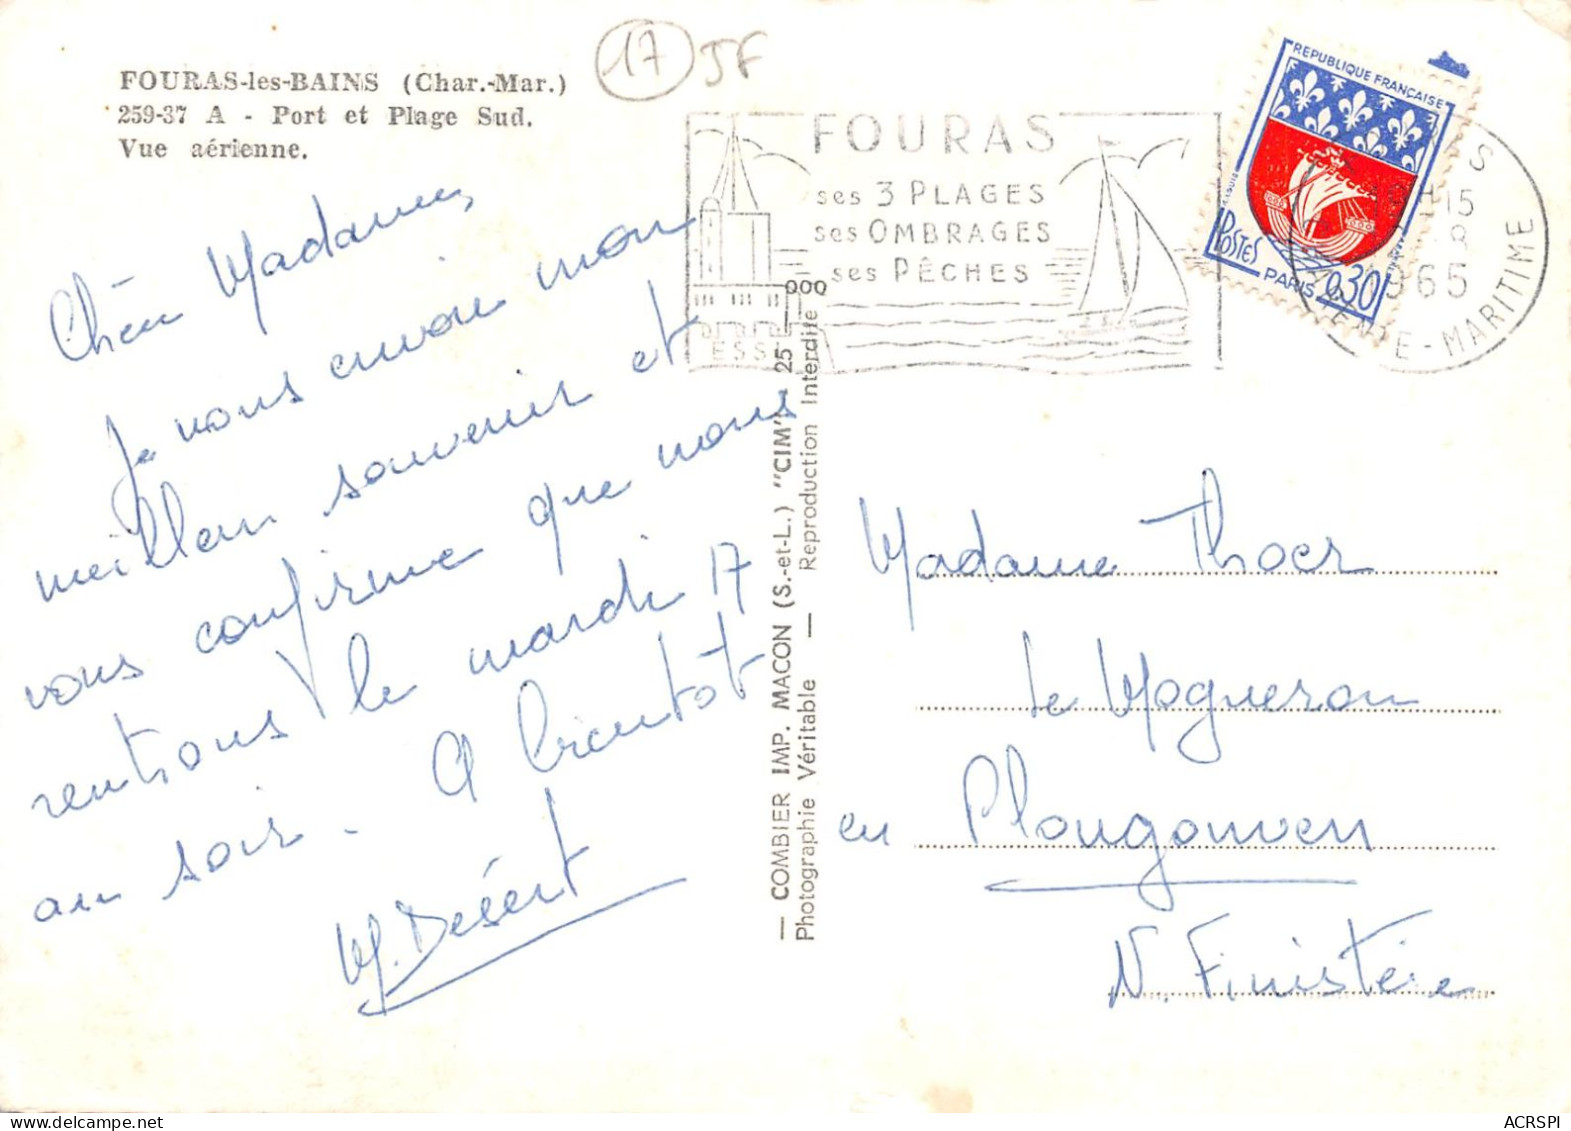 FOURAS-les-BAINS (Char.-Mar.)
259-37 A - Port et Plage Sud.
Vue aérienne.
17 JF
FOURAS
ses 3 PLAGES
ses OMBRAGES
ses PÊCHES
REPUBLIQUE FRANÇAISE
POSTES
PARIS 0,30
15
8
1965
MARITIME
Chère Madame,
Je vous envoie mon
meilleur souvenir et
vous confirme que nous
rentrons le mardi 17
au soir. A bientôt
M. Désert
— COMBIER IMP. MACON (S.-et-L.) "CIM" 25
Photographie Véritable — Reproduction Interdite
Madame Thoer
Le Mogueron
en Plougonven
N Finistère
ACRSPI